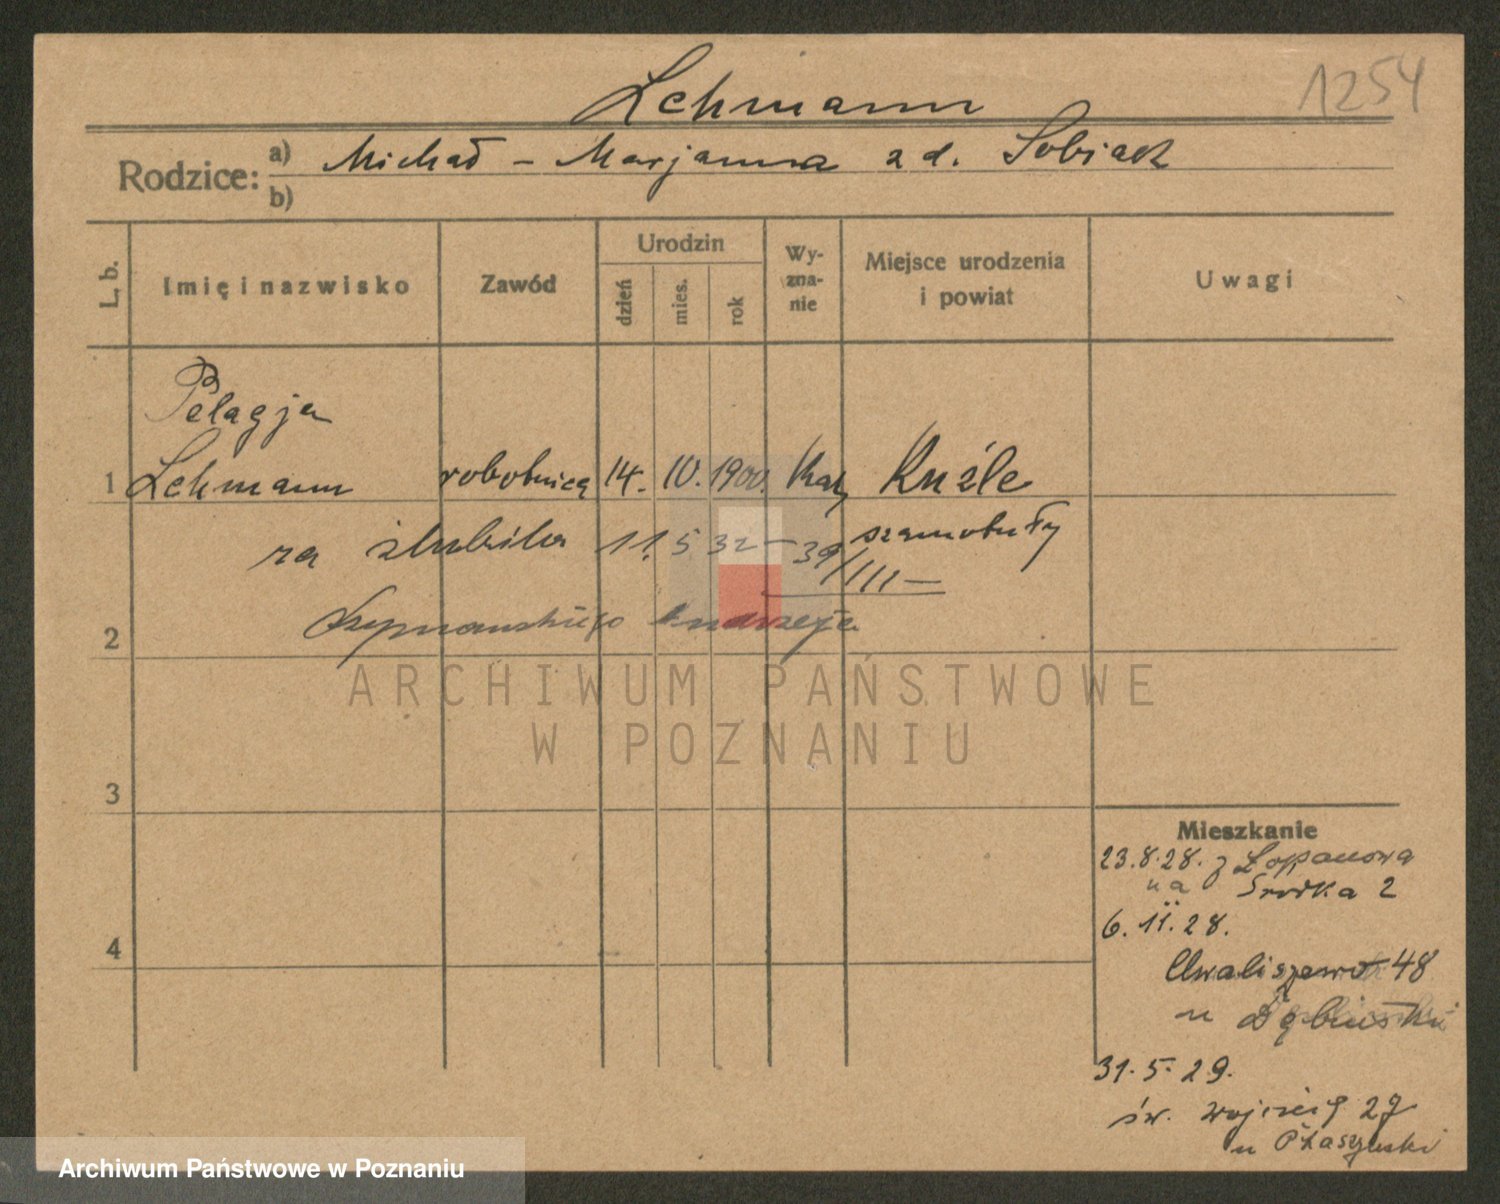 Lehmann
1254
Rodzice: a) Michał – Marjanna z d. Sobiak
b)
L. b. Imię i nazwisko Zawód Urodzin dzień mies. rok Wyznanie Miejsce urodzenia i powiat Uwagi
Pelagja
1 Lehmann robotnica 14. 10. 1900. kat. Kuźle
za ślubiła 11. 5 32 – 39/III – szamotuły
2 Szymańskiego Andrzeja
ARCHIWUM PAŃSTWOWE
W POZNANIU
3
4
Mieszkanie
23.8.28. z
na Środka 2
6. 11. 28.
Chwaliszewo 48
u Dębiński
31. 5. 29.
św. Wojciech 27
u Ptaszyński
Archiwum Państwowe w Poznaniu